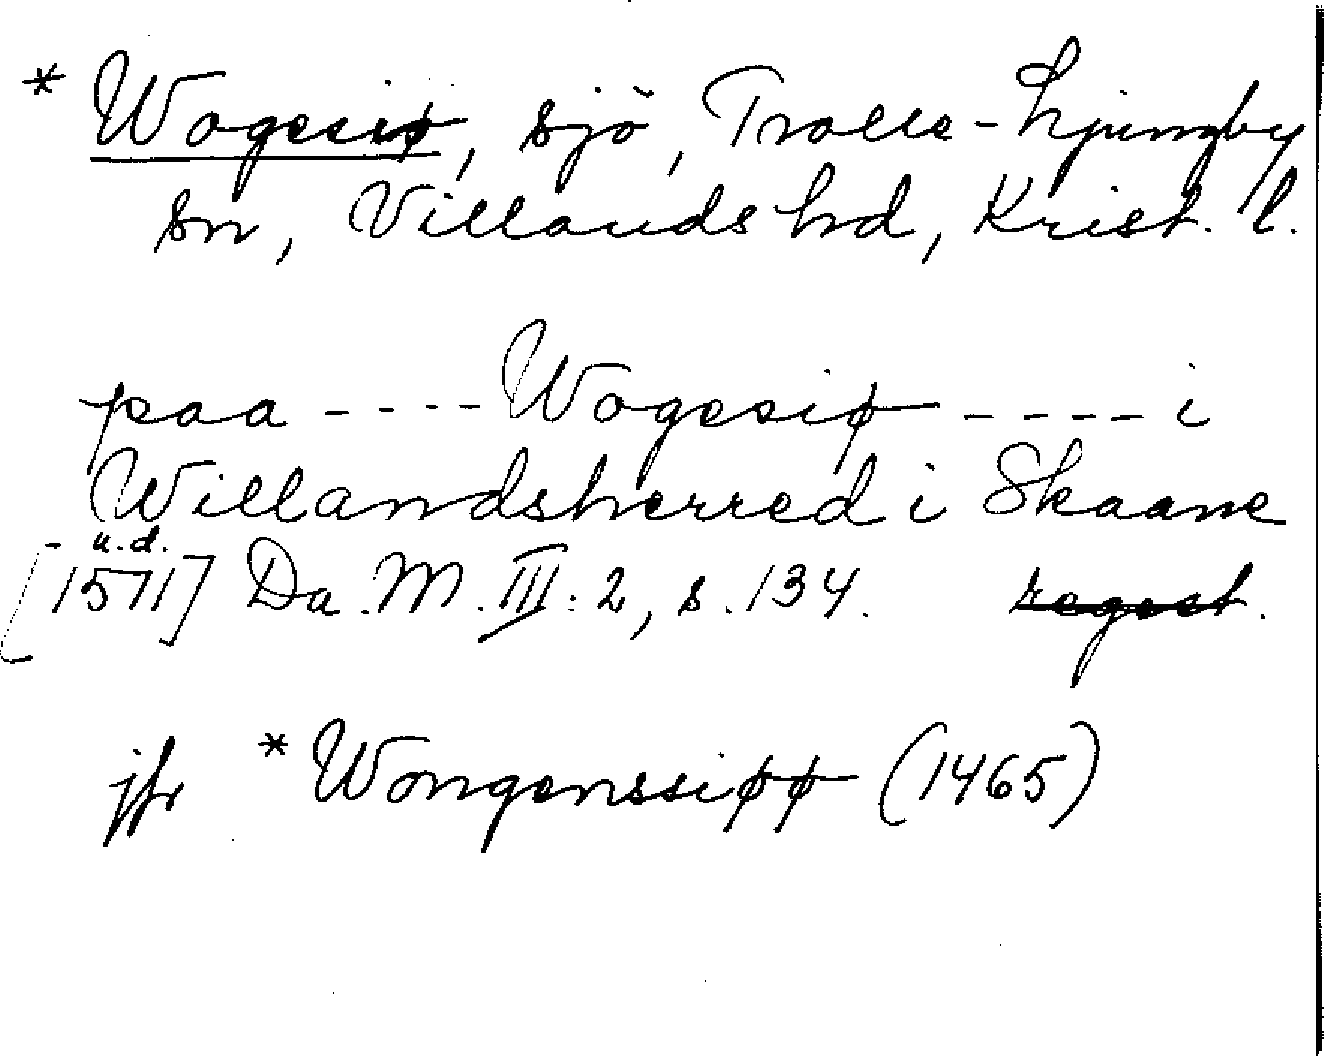 * Wogesiø, sjö, Trolle-Ljungby
sn, Villands hd, Krist. l.
paa ---- Wogesiø ---- i
Willandsherred i Skaane
u.d.
[1571] Da. M. III: 2, s. 134. regest.
jfr * Wongenssiøø (1465)